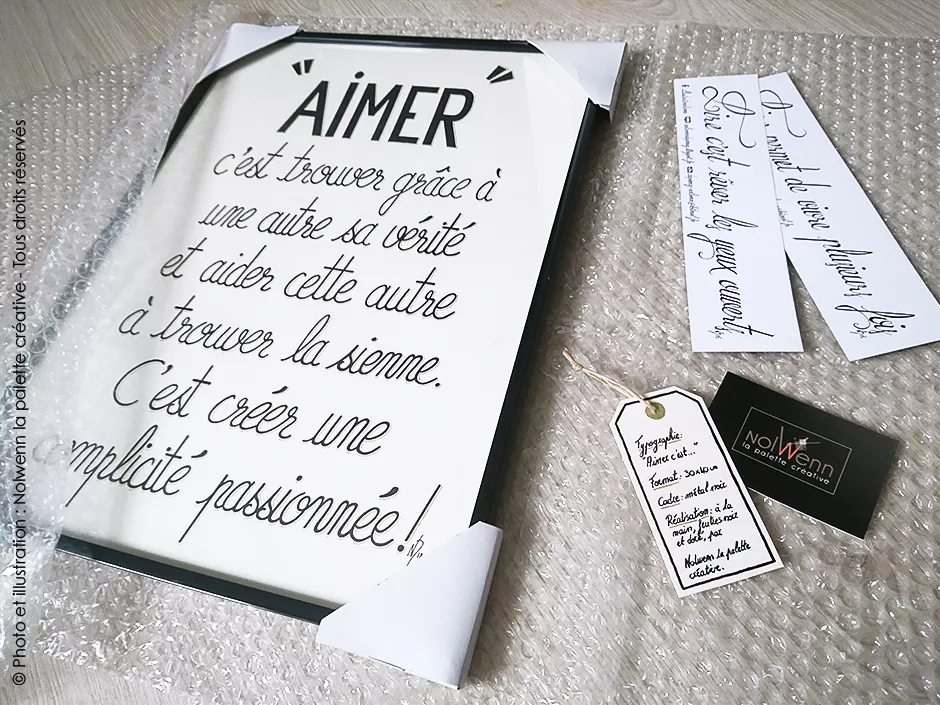 © Photo et illustration : Nolwenn la palette créative - Tous droits réservés
"AiMER"
c'est trouver grâce à
une autre sa vérité
et aider cette autre
à trouver la sienne.
C'est créer une
mplicité passionnée!
Lire c'est rêver les yeux ouverts
de vivre plusieurs fois
Typographie:
"Aimer c'est..."
Format: 30x40cm
Cadre: métal noir
Réalisation: à la
main, feutres noir
et doré, par
Nolwenn la palette
créative.
NolWenn
la palette créative